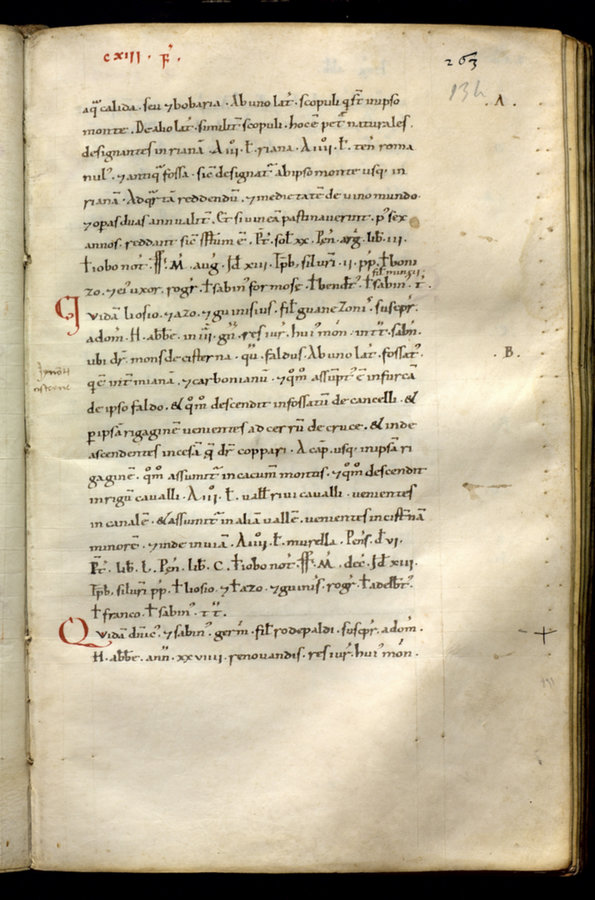 cxiii · F ·
263
134
· A ·
aq calida · seu ⁊ bobaria · Ab uno lat · scopuli q st in ipso
monte · De alio lat · similit scopuli · hoc ē pet naturales ·
designantes in rianā · A iii ł · riana · A iiii · ł · ten roma
nul · ⁊ antiq fossa · sic designat ab ipso monte usq in
rianā · Ad q̄rtā reddendū · ⁊ medietatē de uino mundo
⁊ opas duas annualit · Et si uineā pastinauerint · p sex
annos · reddant sic sctum ē · Pt · sol xx · Pen · arg · lib · iii ·
† iobo not · M · aug · Id xiii · Ipb · siluri · ii · pp · † boni
fil mungis
zo · ⁊ ei uxor · rogr · † sabin formose · † bendt · † sabin · t ·
Quidā liosio · ⁊ azo · ⁊ guinisius · fil guanezoni · suscpr ·
a dom · H · abbe · in iii · gn · res iur · hui mon · in tt · sabin ·
ubi dr · mons de cisterna · qu · faldus · Ab uno lat · fossat ·
· B ·
q ē int mianā · ⁊ carbonianū · ⁊ qm assumpt ē in furcā
de ipso faldo · & qm descendit in fossatū de cancelli · &
p ipsā rigaginē uenientes ad cerrū de cruce · & inde
ascendentes in cesā q dr coppari · A cap · usq in ipsā ri
gaginē · qm assumit in cacum montis · ⁊ qm descendit
in rigū caualli · A iii · ł · uałł riui caualli · uenientes
in canalē · & assumit in aliā uallē · uenientes in cistnā
minorē · ⁊ inde in uiā · A iiii · ł · murella · Pens · d vi ·
Pt · lib · l · Pen · lib · c · † iobo not · M · dec · Id xiii ·
Ipb · siluri pp · † liosio · ⁊ † azo · ⁊ guinis · rogr · † adelbt ·
† franco · † sabin · t t ·
Quidā · ⁊ sabin · germ · fil rodepaldi · suscpr · a dom ·
H · abbe · ann · xx viiii · renouandis · res iur · hui mon ·